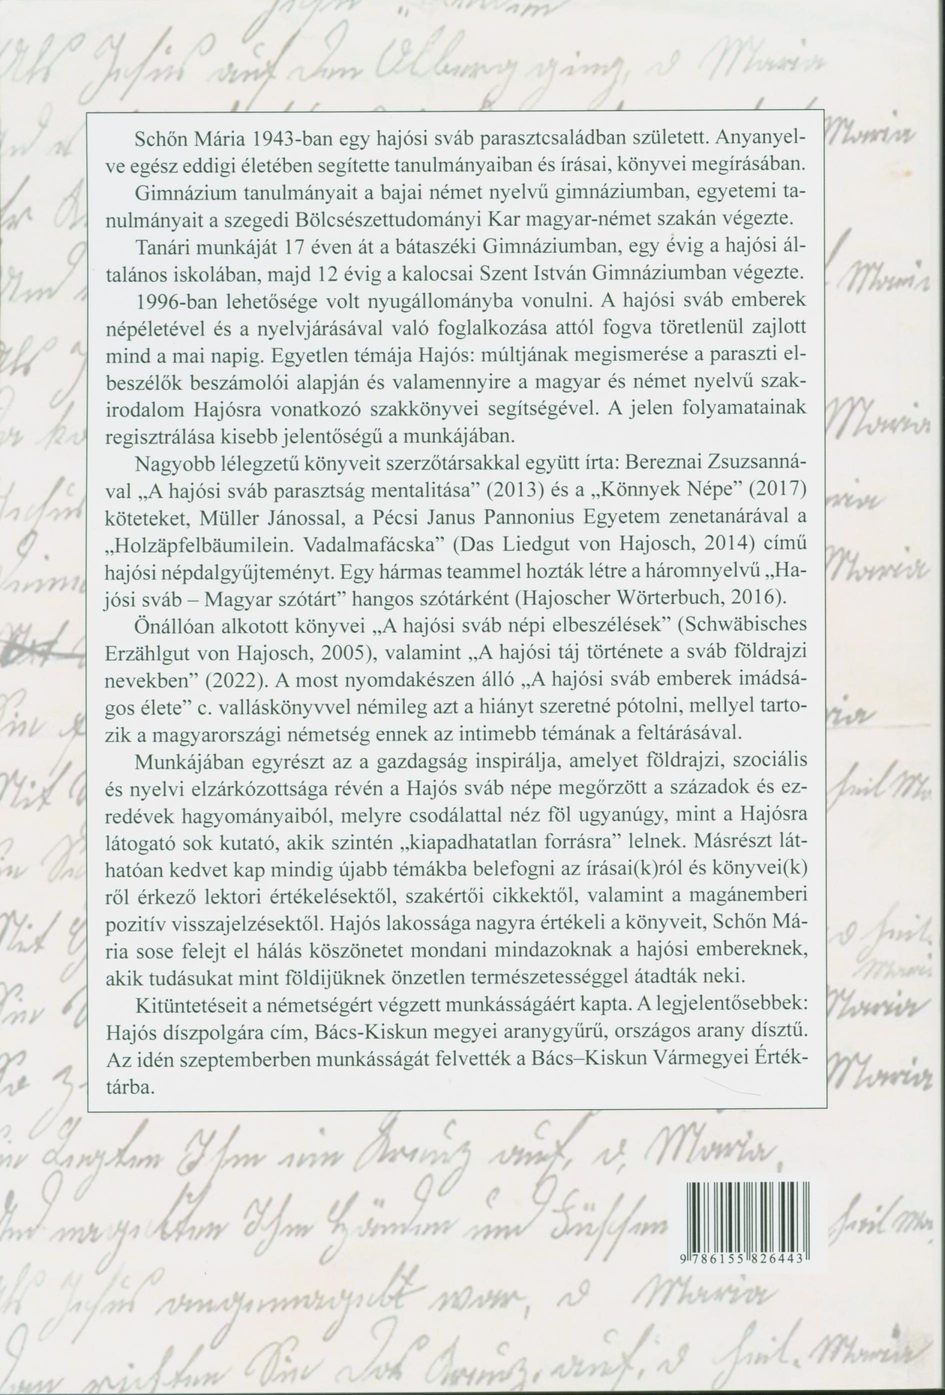 Als Jesus auf den Ölberg ging, o Maria
Schőn Mária 1943-ban egy hajósi sváb parasztcsaládban született. Anyanyel-
ve egész eddigi életében segítette tanulmányaiban és írásai, könyvei megírásában.
Gimnázium tanulmányait a bajai német nyelvű gimnáziumban, egyetemi ta-
nulmányait a szegedi Bölcsészettudományi Kar magyar-német szakán végezte.
Tanári munkáját 17 éven át a bátaszéki Gimnáziumban, egy évig a hajósi ál-
talános iskolában, majd 12 évig a kalocsai Szent István Gimnáziumban végezte.
1996-ban lehetősége volt nyugállományba vonulni. A hajósi sváb emberek
népéletével és a nyelvjárásával való foglalkozása attól fogva töretlenül zajlott
mind a mai napig. Egyetlen témája Hajós: múltjának megismerése a paraszti el-
beszélők beszámolói alapján és valamennyire a magyar és német nyelvű szak-
irodalom Hajósra vonatkozó szakkönyvei segítségével. A jelen folyamatainak
regisztrálása kisebb jelentőségű a munkájában.
Nagyobb lélegzetű könyveit szerzőtársakkal együtt írta: Bereznai Zsuzsanná-
val „A hajósi sváb parasztság mentalitása” (2013) és a „Könnyek Népe” (2017)
köteteket, Müller Jánossal, a Pécsi Janus Pannonius Egyetem zenetanárával a
„Holzäpfelbäumilein. Vadalmafácska” (Das Liedgut von Hajosch, 2014) című
hajósi népdalgyűjteményt. Egy hármas teammel hozták létre a háromnyelvű „Ha-
jósi sváb – Magyar szótárt” hangos szótárként (Hajoscher Wörterbuch, 2016).
Önállóan alkotott könyvei „A hajósi sváb népi elbeszélések” (Schwäbisches
Erzählgut von Hajosch, 2005), valamint „A hajósi táj története a sváb földrajzi
nevekben” (2022). A most nyomdakészen álló „A hajósi sváb emberek imádsá-
gos élete” c. valláskönyvvel némileg azt a hiányt szeretné pótolni, mellyel tarto-
zik a magyarországi németség ennek az intimebb témának a feltárásával.
Munkájában egyrészt az a gazdagság inspirálja, amelyet földrajzi, szociális
és nyelvi elzárkózottsága révén a Hajós sváb népe megőrzött a századok és ez-
redévek hagyományaiból, melyre csodálattal néz föl ugyanúgy, mint a Hajósra
látogató sok kutató, akik szintén „kiapadhatatlan forrásra” lelnek. Másrészt lát-
hatóan kedvet kap mindig újabb témákba belefogni az írásai(k)ról és könyvei(k)
ről érkező lektori értékelésektől, szakértői cikkektől, valamint a magánemberi
pozitív visszajelzésektől. Hajós lakossága nagyra értékeli a könyveit, Schőn Má-
ria sose felejt el hálás köszönetet mondani mindazoknak a hajósi embereknek,
akik tudásukat mint földijüknek önzetlen természetességgel átadták neki.
Kitüntetéseit a németségért végzett munkásságáért kapta. A legjelentősebbek:
Hajós díszpolgára cím, Bács-Kiskun megyei aranygyűrű, országos arany dísztű.
Az idén szeptemberben munkásságát felvették a Bács–Kiskun Vármegyei Érték-
tárba.
Legten Ihm ein Kreuz auf, o, Maria,
nagelten Ihm Händen und Füssen
heil Ma
9 786155 826443
Jesus angenagelt war, o Maria
richten Sie das Kreuz auf, o heil. Maria